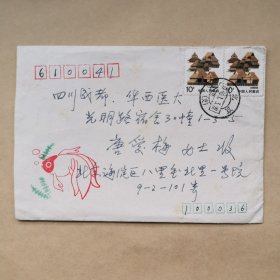 610041
10分 10分
中国人民邮政 中国人民邮政
四川成都. 华西医大
光明路宿舍30幢1-3
唐爱梅 女士收
北京海淀区八里庄北里一号院
9-2-101号
100036